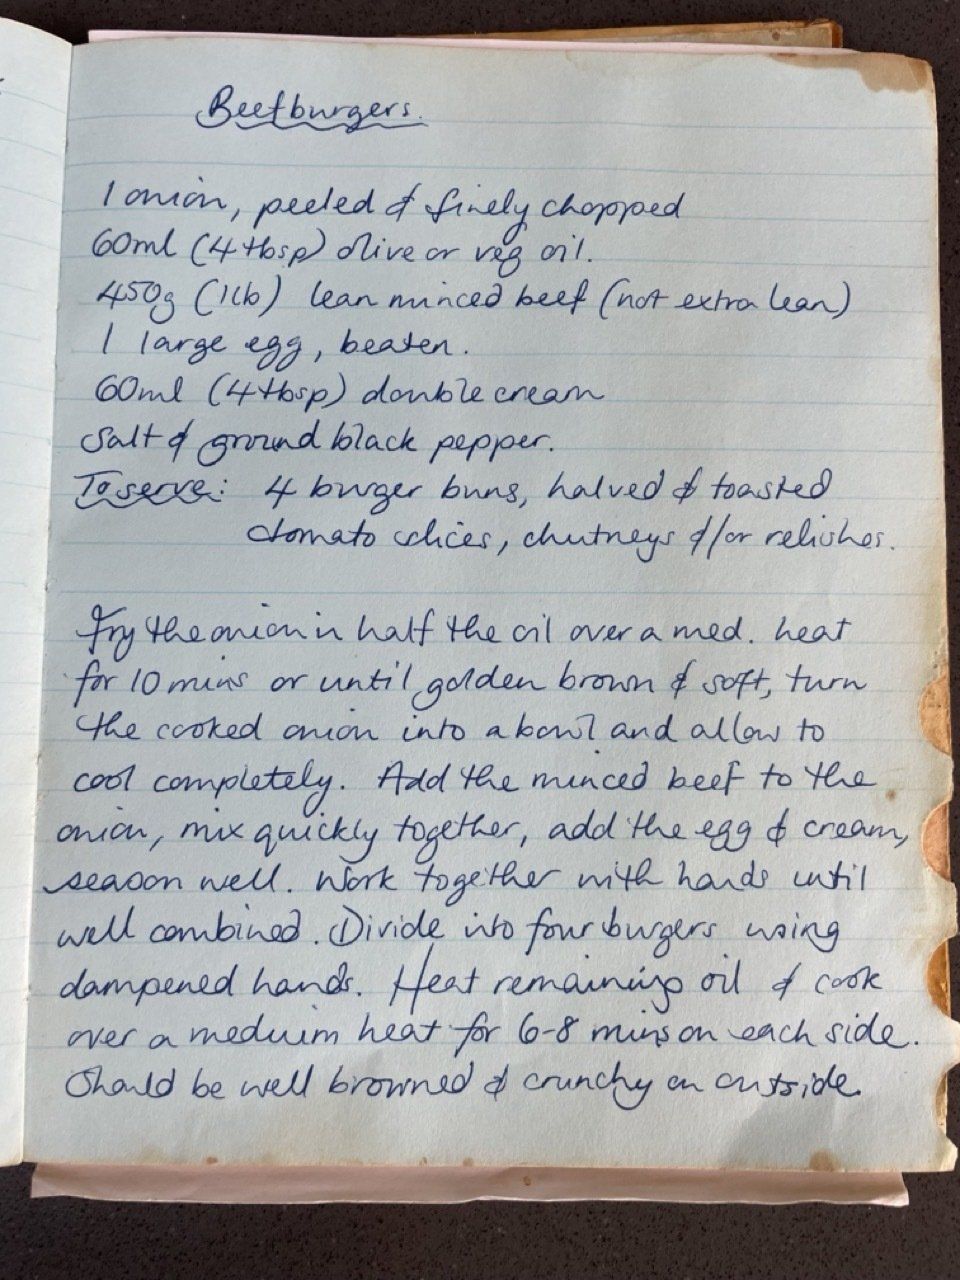 Beefburgers.
1 onion, peeled & finely chopped
60ml (4tbsp) olive or veg oil.
450g (1lb) lean minced beef (not extra lean)
1 large egg, beaten.
60ml (4tbsp) double cream
Salt & ground black pepper.
To serve: 4 burger buns, halved & toasted
tomato slices, chutneys &/or relishes.
Fry the onion in half the oil over a med. heat
for 10 mins or until golden brown & soft, turn
the cooked onion into a bowl and allow to
cool completely. Add the minced beef to the
onion, mix quickly together, add the egg & cream,
season well. Work together with hands until
well combined. Divide into four burgers using
dampened hands. Heat remaining oil & cook
over a meduim heat for 6-8 mins on each side.
Should be well browned & crunchy on outside.